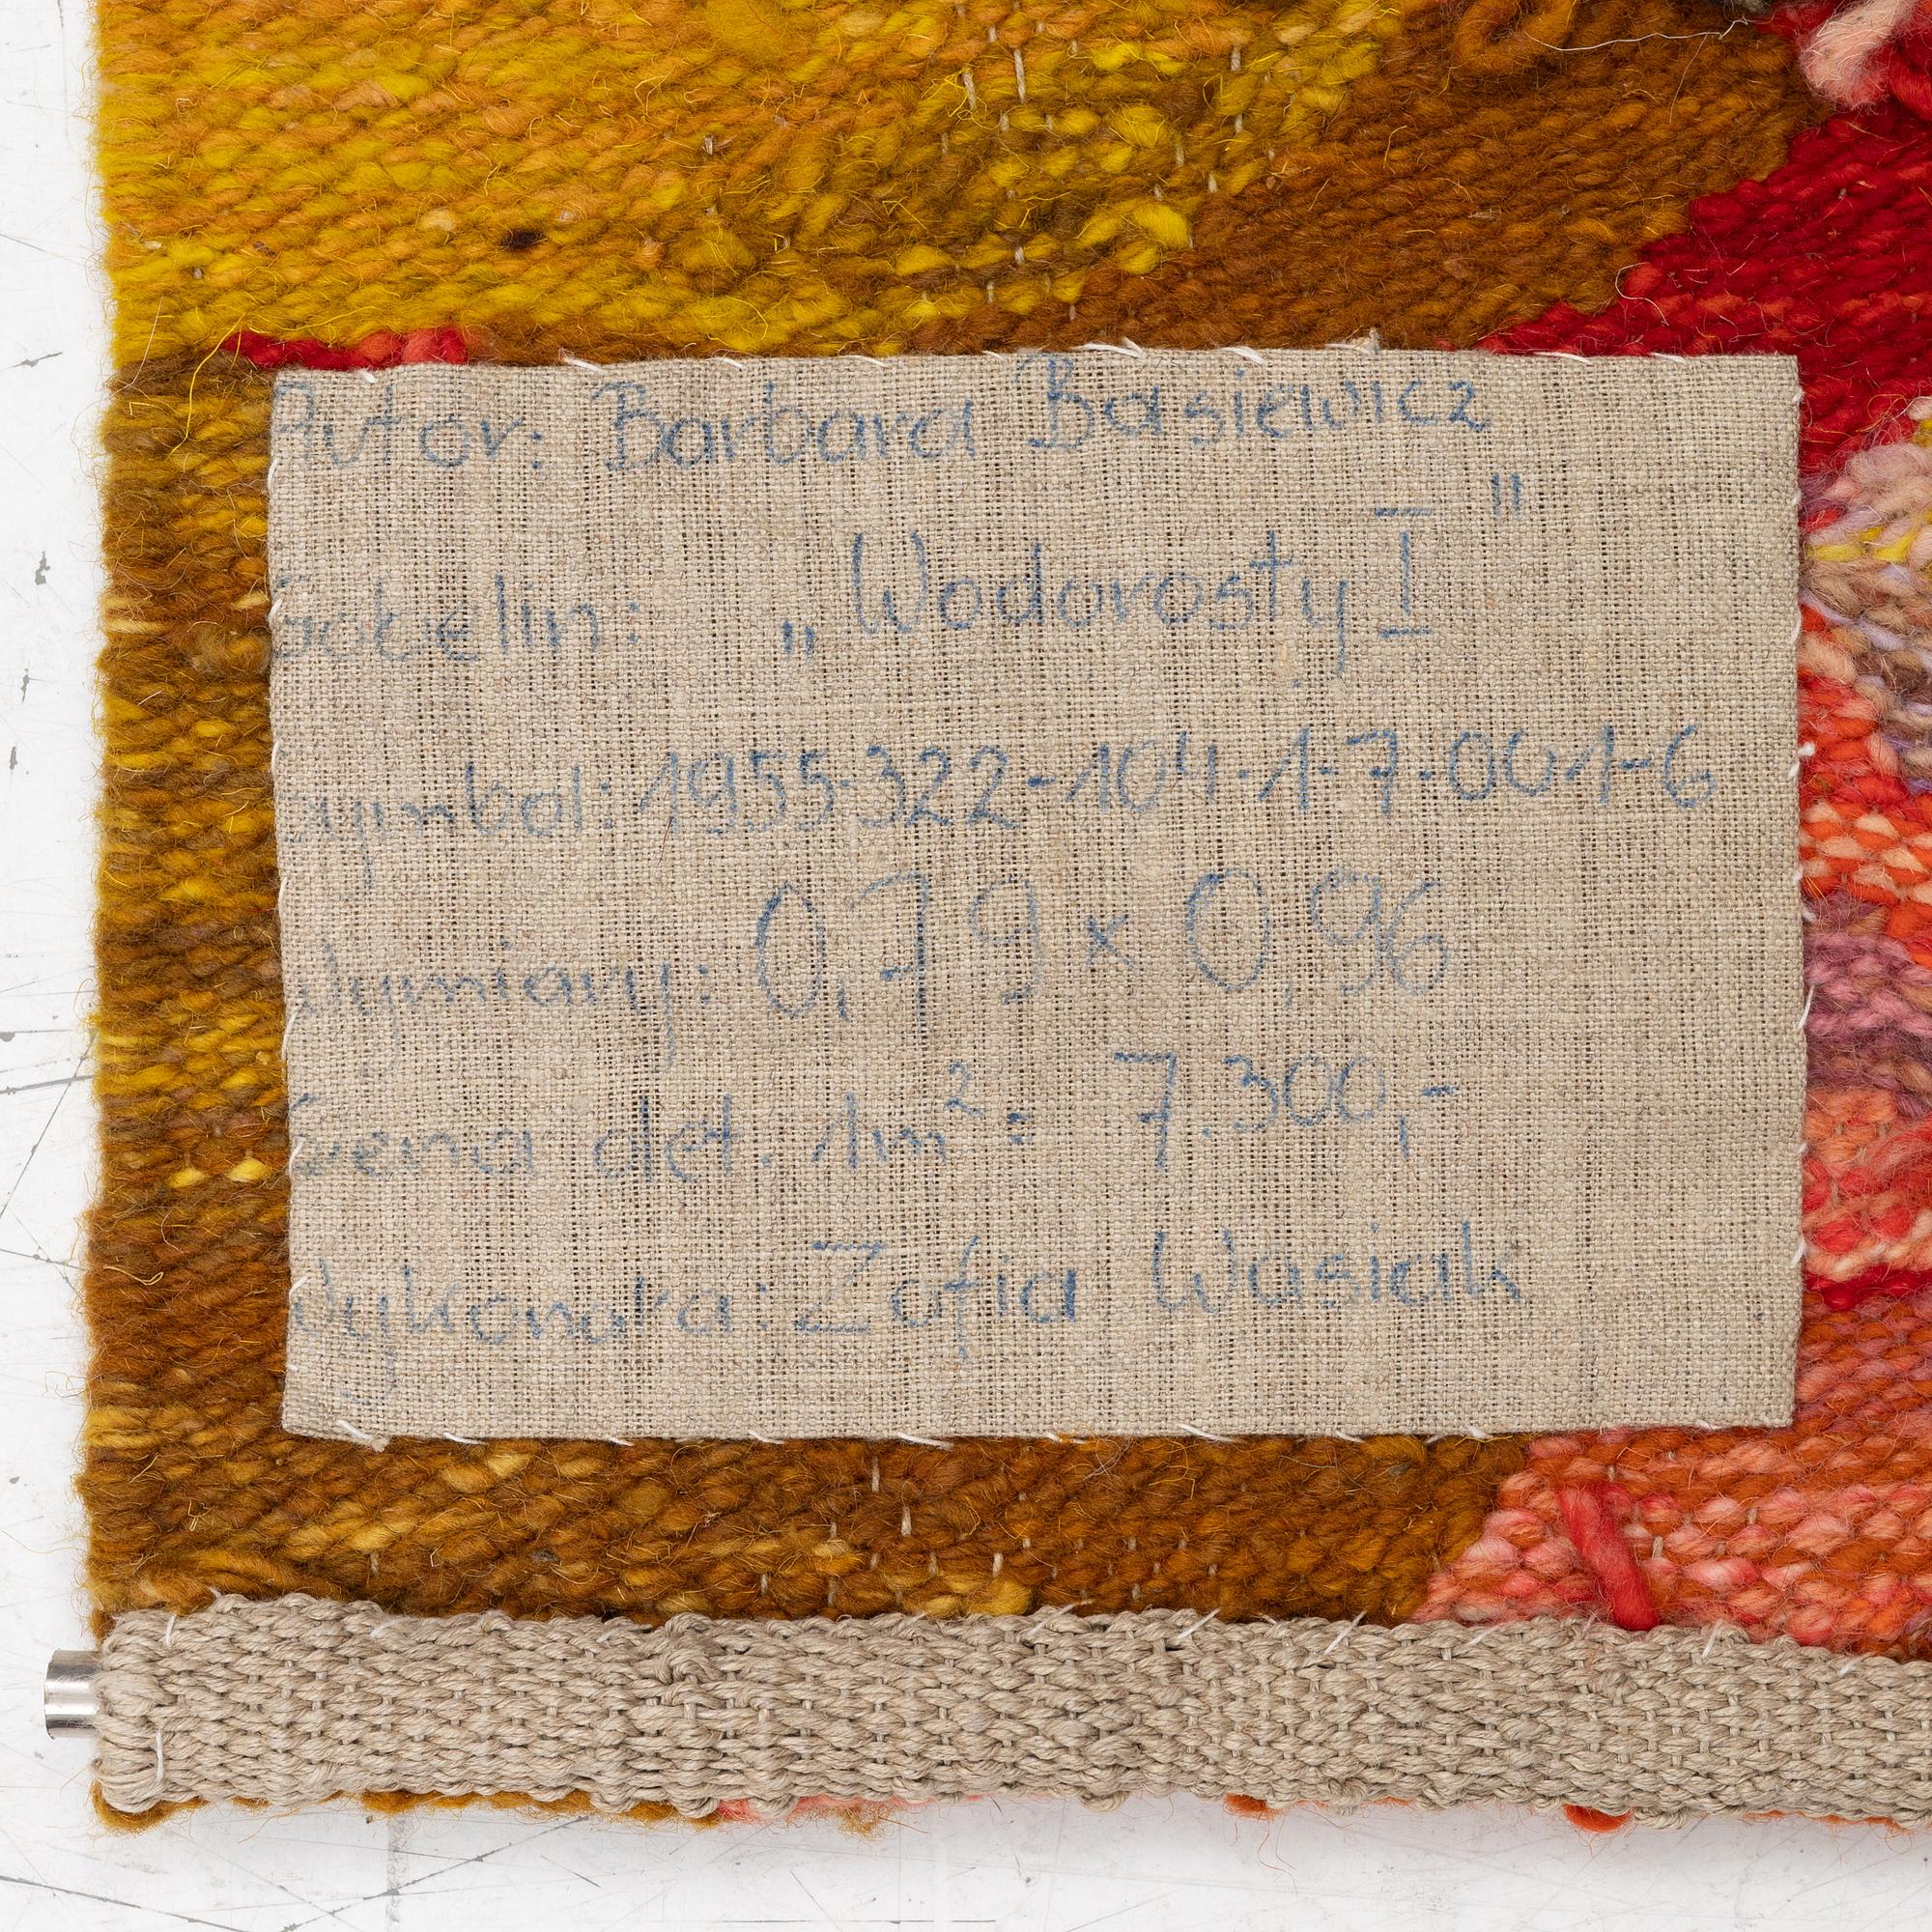 Autor: Barbara Basiewicz
Gobelin: „Wodorosty I"
symbol: 1955-322-104-1-7-001-6
Wymiary: 0,79 x 0,96
Cena det. 1m²: 7.300,-
Wykonała: Zofia Wasiak